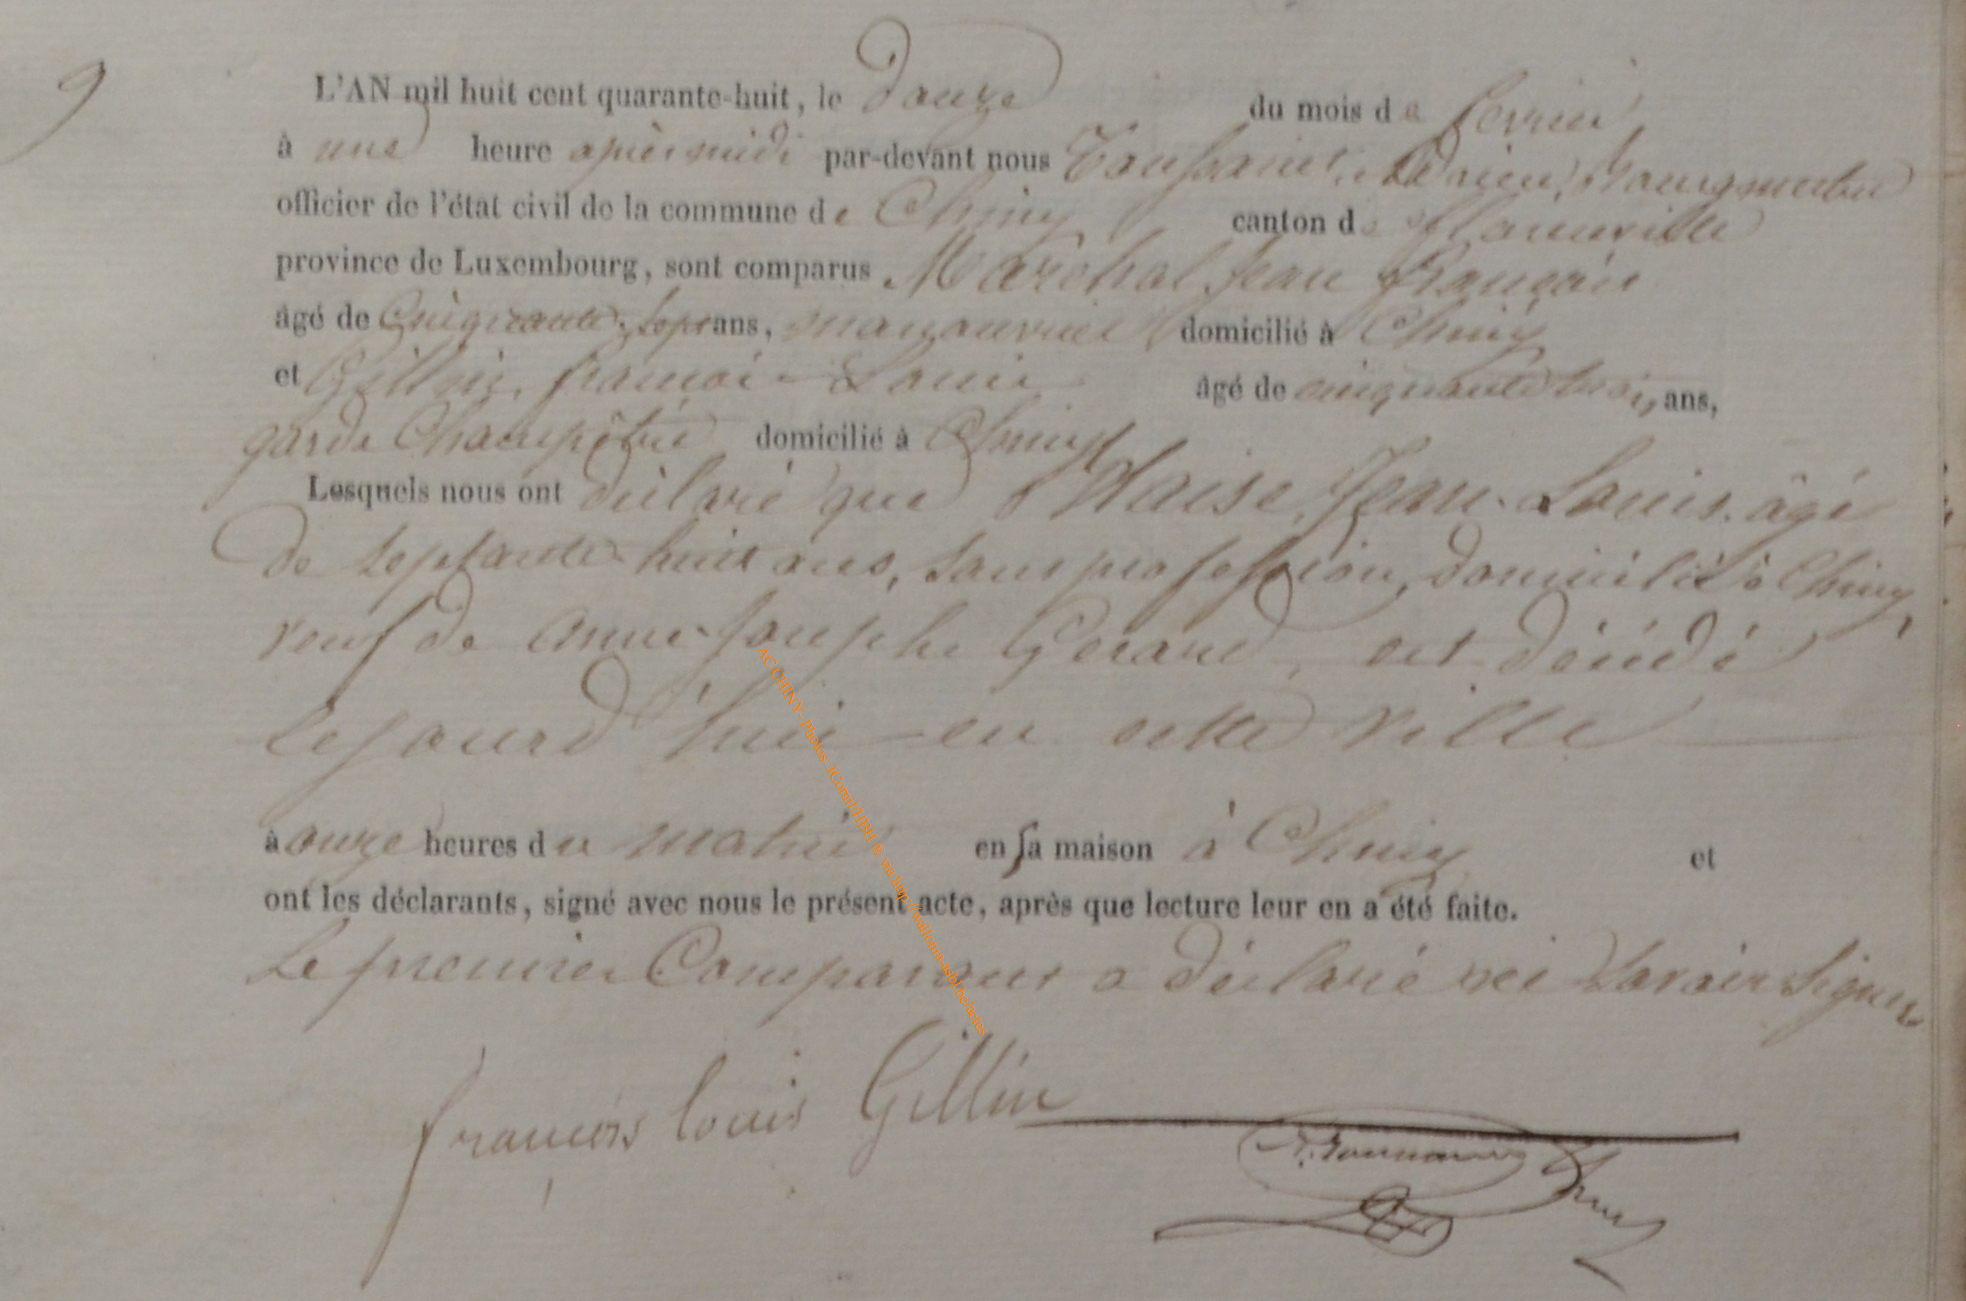 9
L'AN mil huit cent quarante-huit, le douze du mois de fevrier
à une heure après midi par-devant nous Toussaint, Adrien, Bourgmestre
officier de l'état civil de la commune de Chiny canton de Florenville
province de Luxembourg, sont comparus Maréchal Jean François
âgé de Cinquante-sept ans, manouvrier domicilié à Chiny
et Gillin, françois-Louis âgé de cinquante trois, ans,
garde Champêtre domicilié à Chiny
Lesquels nous ont déclaré que Blaise, Jean-Louis, âgé
de Septante-huit ans, Sans profession, domicilié à Chiny,
veuf de Anne-Josephe Gerard, est décédé
cejourd'hui en cette Ville
à onze heures du matin en sa maison à Chiny et
ont les déclarants, signé avec nous le présent acte, après que lecture leur en a été faite.
Le premier Comparant a déclaré ne Savoir Signer
françois louis Gillin
A. Toussaint